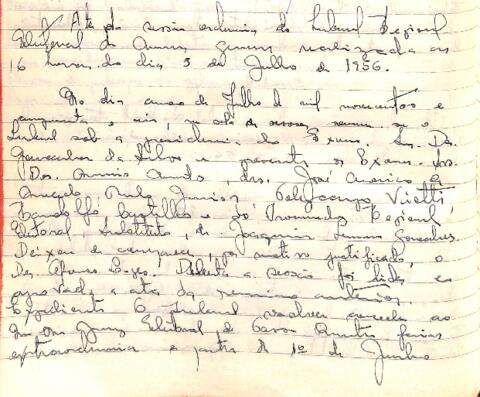 Ata da sessão ordinária do Tribunal Regional
Eleitoral de Minas Gerais realizada às
16 horas do dia 5 de Julho de 1956.
No dia cinco de Julho de mil novecentos e
cinquenta e seis, na sala de sessões, reuniu-se o
Tribunal sob a presidência do Exmo. Snr. Des.
da Silva e presentes os Exmos. Srs.
Des. drs. José Américo
Junior,
e do Procurador Regional
Eleitoral, Substituto, dr. Joaquim Gonçalves.
Deixou de comparecer, por motivo justificado, o
Des. Afonso Aberta a sessão foi lida e
aprovada a ata da reunião anterior.
Expediente O Tribunal resolveu conceder ao
Juiz Eleitoral de férias
extraordinária a partir de 1º de Junho